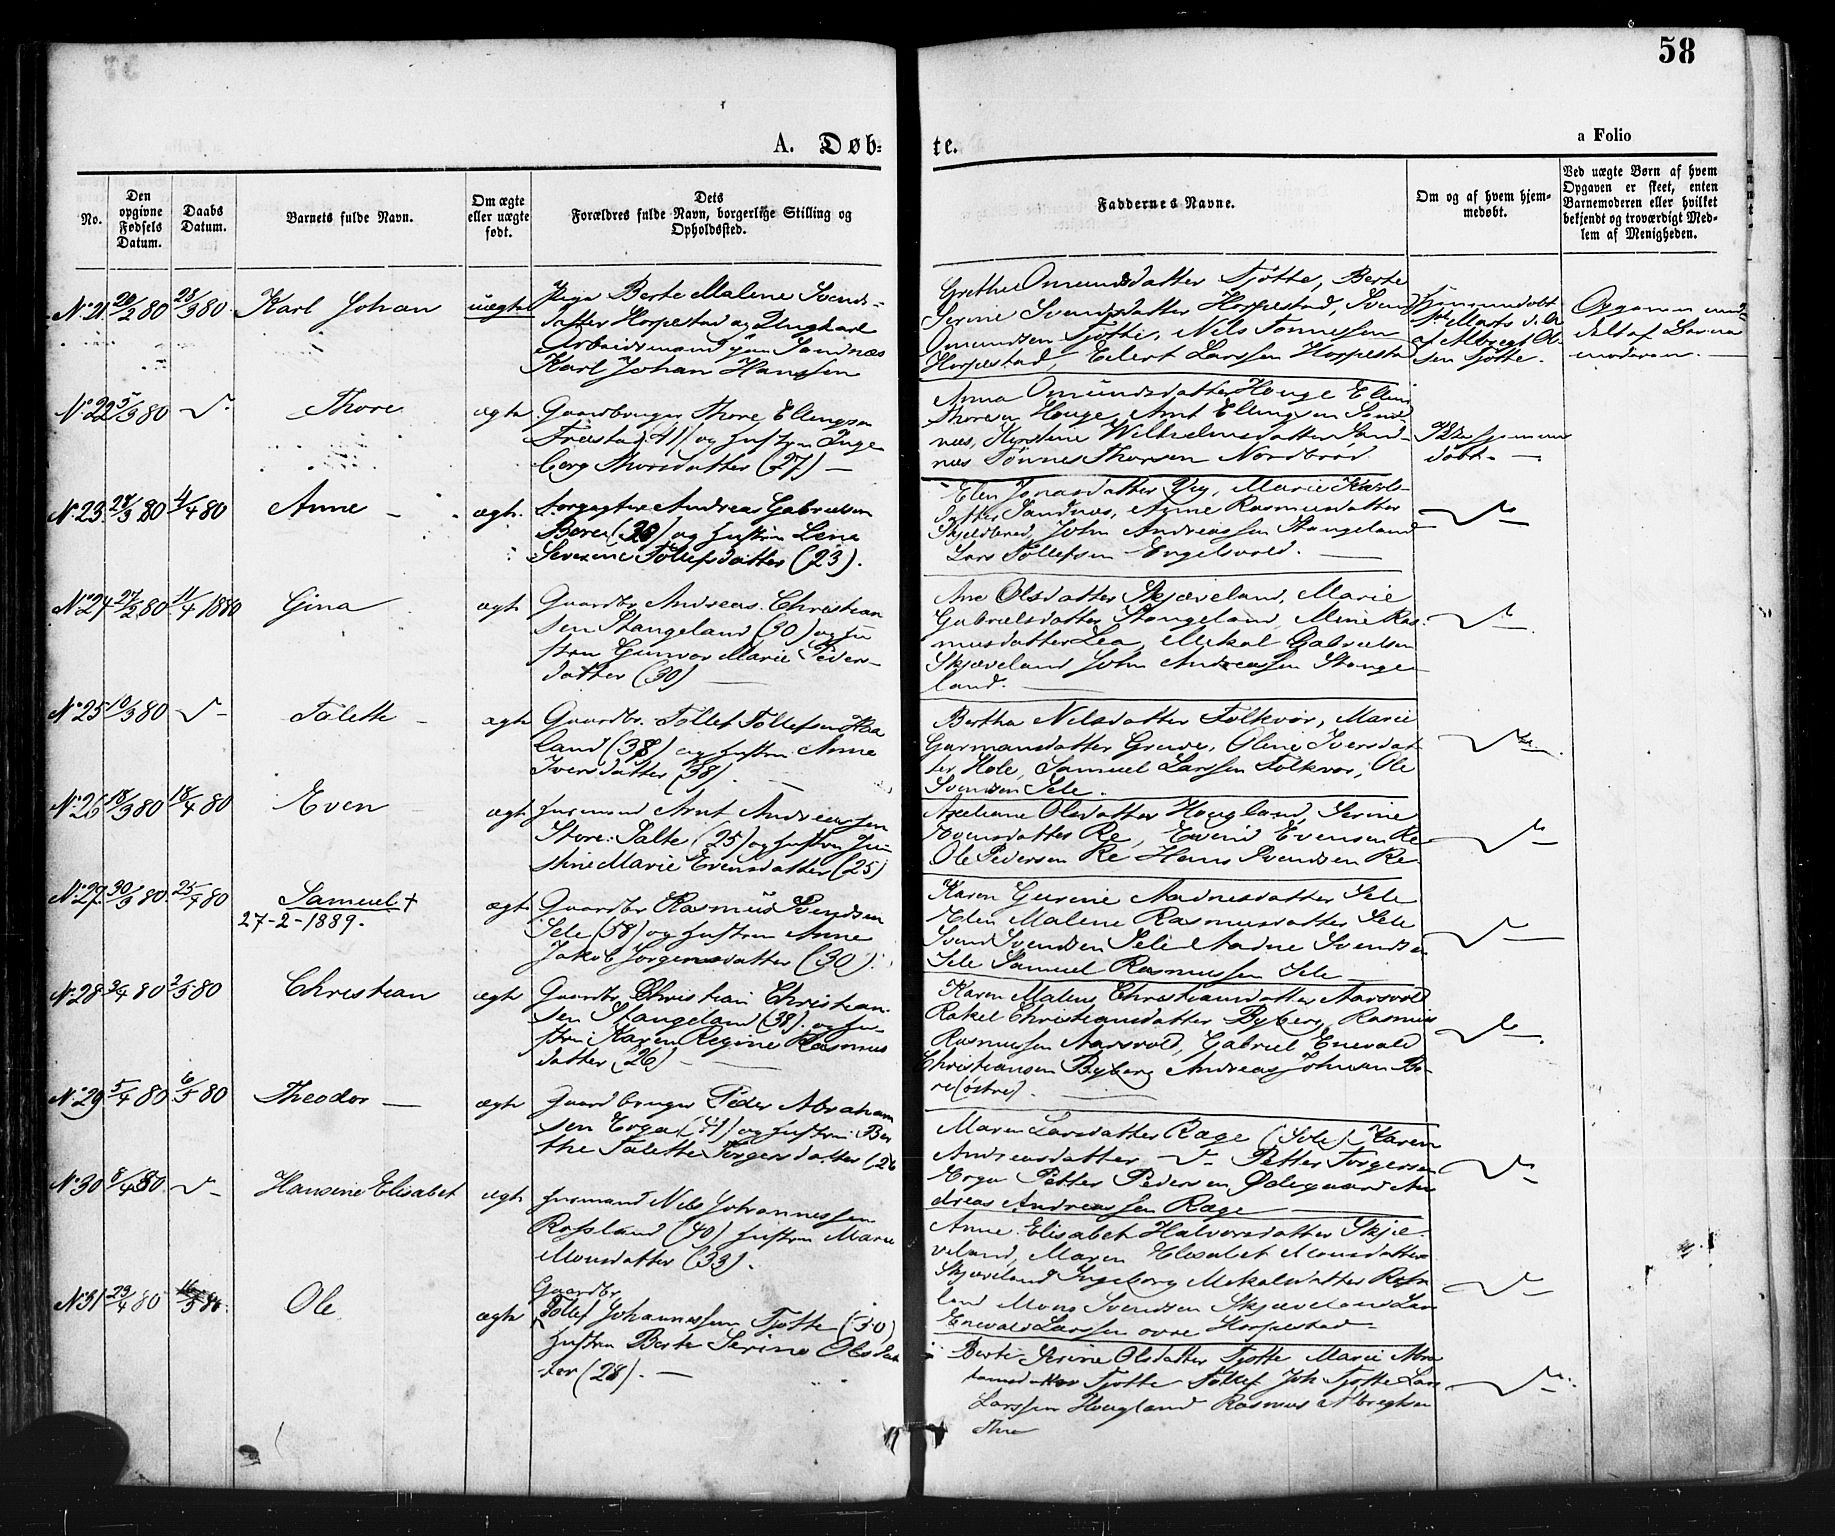 58
A. Døb-
te.
a Folio
No.
Den opgivne Fødsels Datum.
Daabs Datum.
Barnets fulde Navn.
Om ægte eller uægte født.
Dets
Forældres fulde Navn, borgerlige Stilling og
Opholdssted.
Faddernes Navne.
Om og af hvem hjem-
medøbt.
Ved uægte Børn af hvem
Opgaven er skeet, enten
Barnemoderen eller hvilket
bekjendt og troværdigt Med-
lem af Menigheden.
No 21 26/2 80 28/3 80 Karl Johan uægte Pige Berte Malene Svends-
datter Horpestad og Ungkarl
Arbeidsmand Sandnæs
Karl Johan Hanssen
Grethe Omundsdatter Tjøtte, Berte
Serine Svendsdatter Horpestad, Svend
Omundsen Tjøtte, Nils Tønnessen
Horpestad, Eilert Larssen Horpestad
Hjemmedøbt
af Albregt Ol-
sen Tjøtte.
Opgaven med-
delt af Barne
moderen.
No 22 5/3 80 Thore ægte Gaardbruger Thore Ellingsen
Friestad (41) og Hustru Inge
borg Thorsdatter (27) —
Anna Omundsdatter Houge Ellen
Thorsen Houge, Arnt Ellingsen Sand
næs, Kirstine Wilhelmsdatter Sand-
næs Tønnes Thorsen Nordbraad
Ikke hjemme
døbt. —
No 23 28/3 80 4/4 80 Anne — ægte. Forpagter Andreas Gabrielsen
Bore (30) og Hustru Lena
Severine Tollefsdatter (23).
Elen Jonasdatter Vig, Marie Karls-
datter Sandnæs, Anne Rasmusdatter
Skjeldbred, John Andreassen Stangeland
Lars Tollefsen Engelsvold. —
No 24 27/2 80 11/4 1880 Gina ægte Gaardbr. Andreas Christian
sen Stangeland (30) og Hu
stru Gunvor Marie Peder-
datter (30) —
Ane Olsdatter Skjæveland, Marie
Gabrielsdatter Stangeland, Mine Ras-
musdatter Lea, Mikal Gabrielsen
Skjæveland John Andreassen Stange-
land. —
No 25 10/3 80 Talette — ægte Gaardbr. Tollef Tollefsen Haa
land (38) og Hustru Anne
Iversdatter (38). —
Bertha Nilsdatter Folkvor, Marie
Garmansdatter Grude, Oline Iversdat-
ter Hole, Samuel Larssen Folkvor, Ole
Svendsen Sele.
No 26 18/3 80 18/4 80 Even — ægte Husmand Arnt Andreassen
Store: Salte (25) og Hustru Ju
stine Marie Evensdatter (25)
Axeliane Olsdatter Hougland, Serine
Evensdatter Re, Eivind Evensen Re
Ole Pedersen Re Hans Svendsen Re
No 27 30/3 80 25/4 80 Samuel +
27-2-1889.
ægte Gaardbr Rasmus Svendsen
Sele (58) og Hustru Anne
Jakob Jørgensdatter (30).
Karen Gurine Aadnesdatter Sele
Elen Malene Rasmusdatter Sele
Svend Svendsen Sele Aadne Svendsen
Sele Samuel Rasmussen Sele —
No 28 3/4 80 2/5 80 Christian ægte Gaardbr Christian Christian-
sen Stangeland (38). og Hu-
stru Karen Regine Rasmus
datter (26) —
Karen Malene Christiansdatter Aarsvold
Rakel Christiansdatter Byberg, Rasmus
Rasmussen Aarsvold, Gabriel Enevald
Christiansen Byberg Andreas Johnsen Bo-
re (østre). —
No 29 5/4 80 6/5 80 Theodor — ægte Gaardbruger Peder Abraham
sen Erga (41) og Hustru Ber
the Talette Torgersdatter (26
Maren Larsdatter Rage (Sole) Karen
Andreasdatter Petter Torgersen
Erga Petter Pedersen Ødegaard An
dreas Andreassen Rage —
No 30 8/4 80. Hansine Elisabet ægte Husmand Nils Johannessen
Rossland (40) Hustru Marie
Monsdatter (33).
Anne Elisabet Halvorsdatter Skjæ-
veland, Maren Elisabet Monsdatter
Skjæveland Ingeborg Mikalsdatter Ross
land Mons Svendsen Skjæveland Lars
Enevald Larssen øvre Horpestad —
No 31 23/4 80 16/5 80. Ole ægte Gaardbr
Tollef Johannessen Tjøtte (30)
Hustru Berte Serine Olsdat
ter (28). —
Berte Serine Olsdatter Tjøtte Marie Abra
hamsdatter Tjøtte Tollef Joh Tjøtte Lars
Larssen Hougland Rasmus Albregtsen
Thu